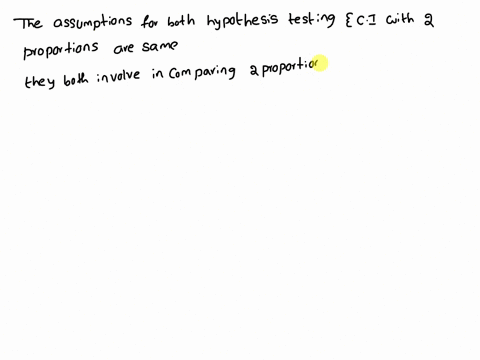 The assumptions for both hypothesis testing & C.I with 2
proportions are same
they both involve in comparing 2 proportion